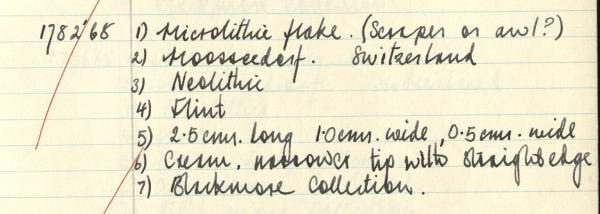 1782'68 1) Microlithic flake. (Scraper or awl?)
2) Moosseedorf. Switzerland
3) Neolithic
4) Flint
5) 2.5cms. long 1.0cms. wide, 0.5cms. wide
6) Cream, narrower tip with straight edge
7) Blackmore Collection.